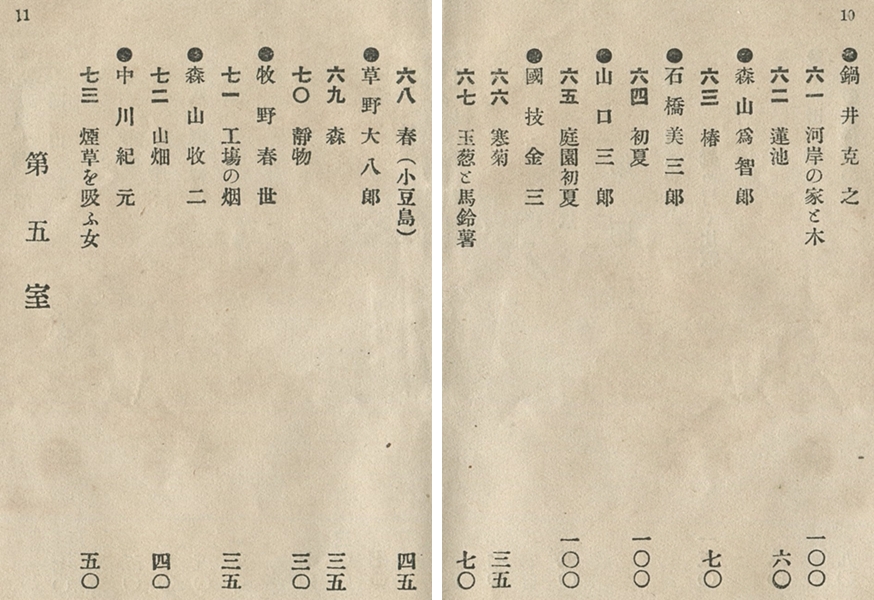 10
●鍋井克之
六一 河岸の家と木 一〇〇
六二 蓮池 六〇
●森山爲智郎
六三 椿 七〇
●石橋美三郎
六四 初夏 一〇〇
●山口三郎
六五 庭園初夏 一〇〇
●國技金三
六六 寒菊 三五
六七 玉葱と馬鈴薯 七〇
11
六八 春(小豆島) 四五
●草野大八郎
六九 森 三五
七〇 靜物 三〇
●牧野春世
七一 工塲の烟 三五
●森山收二
七二 山畑 四〇
●中川紀元
七三 煙草を吸ふ女 五〇
第五室